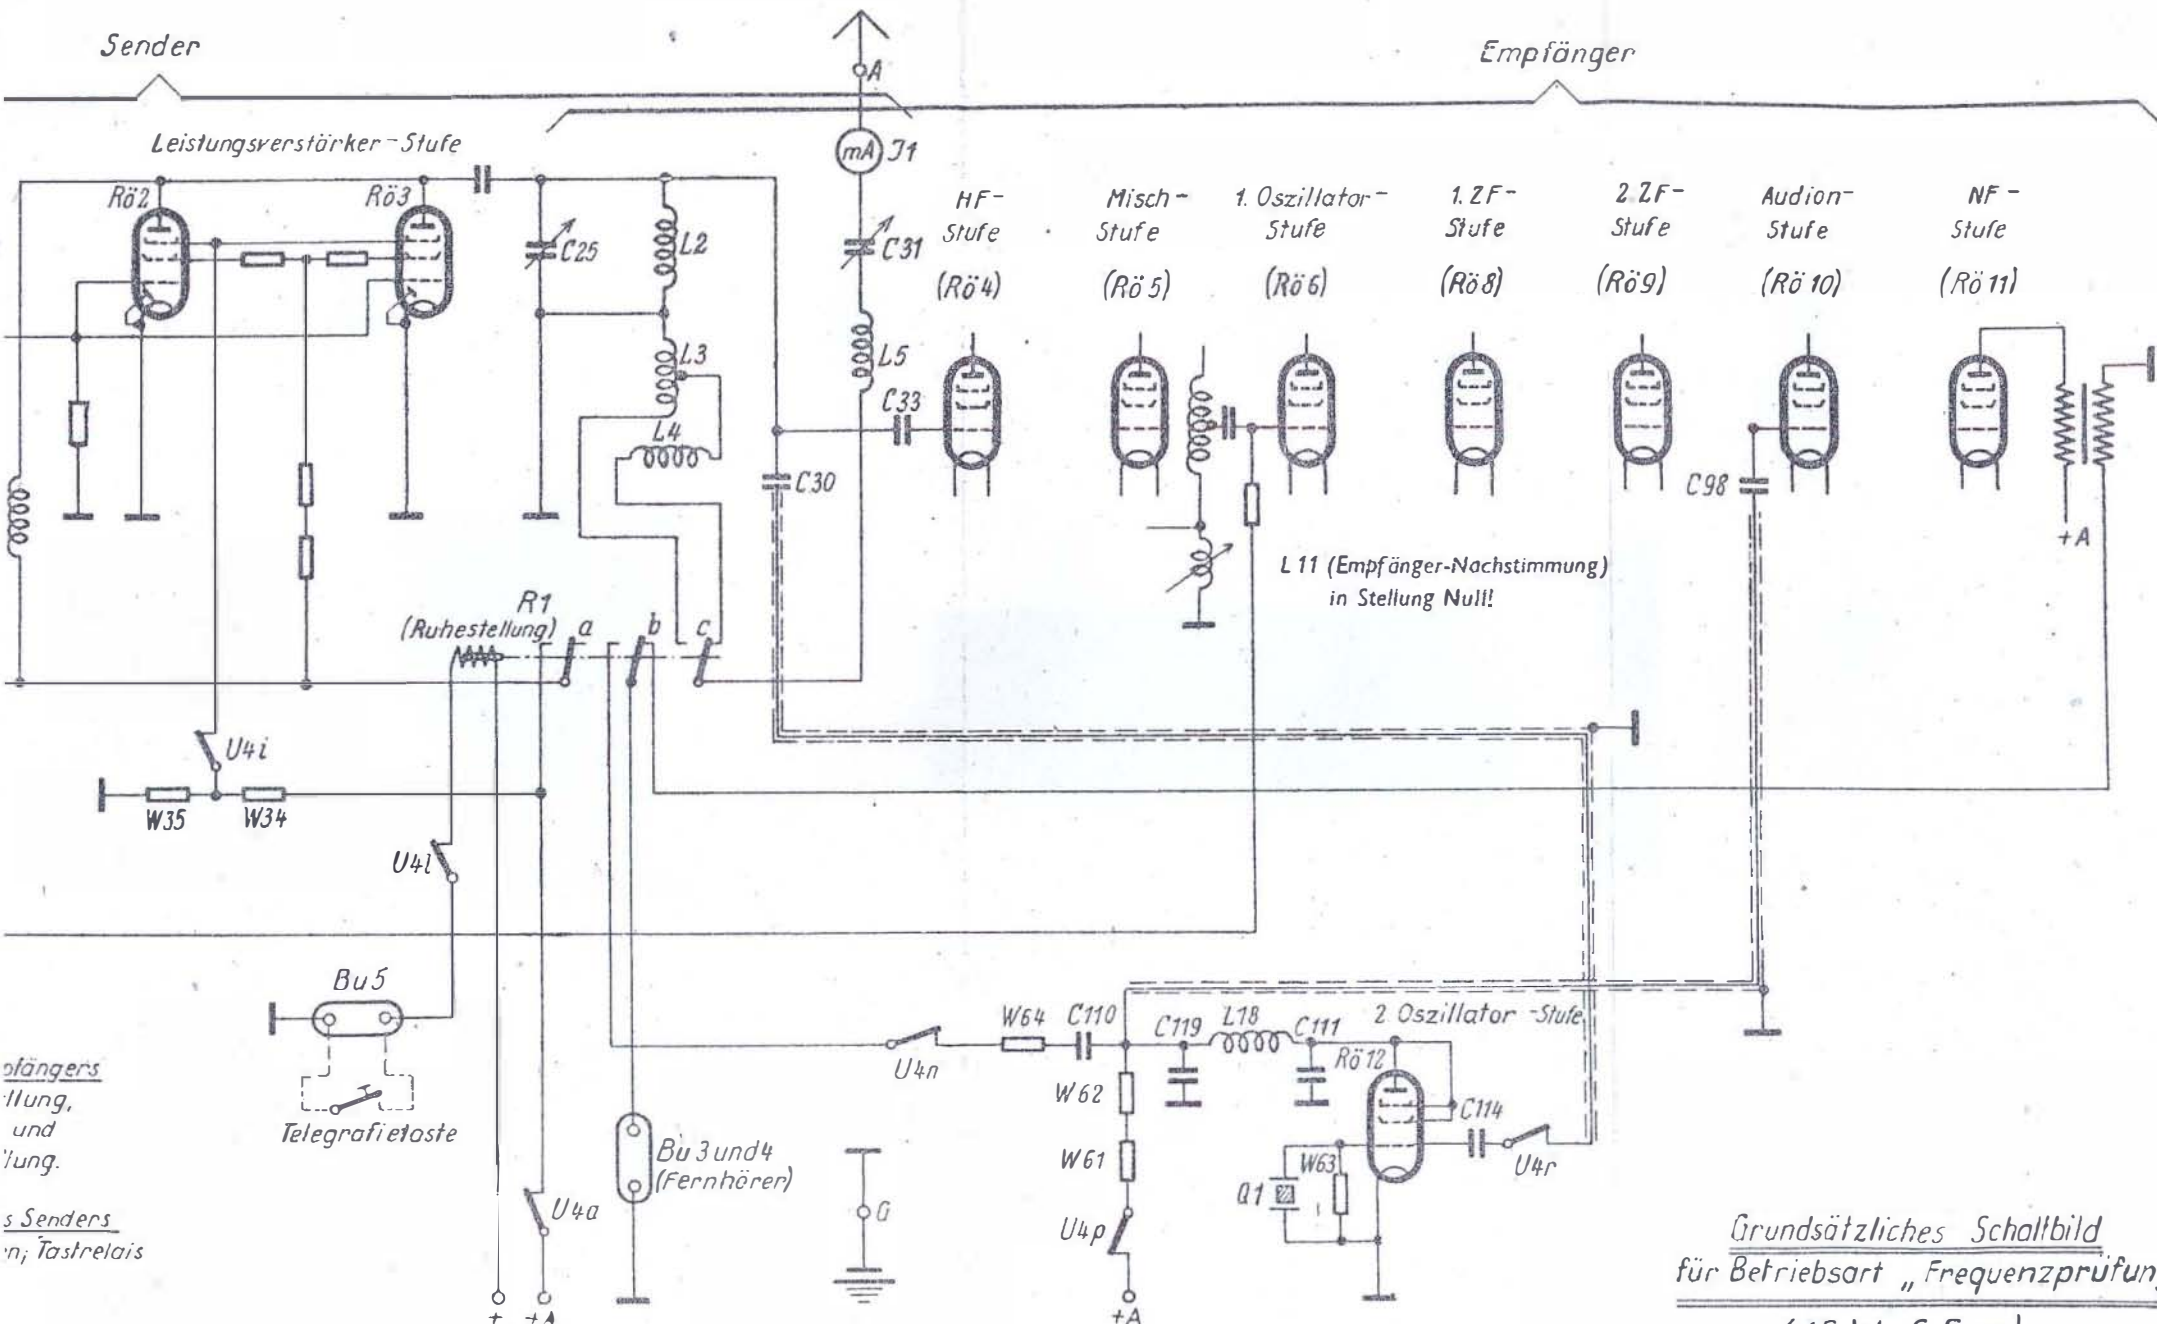 Sender
Empfänger
A
mA J1
Leistungsverstärker-Stufe
Rö2
Rö3
C25
L2
L3
L4
C31
L5
C33
C30
HF-
Stufe
(Rö4)
Misch-
Stufe
(Rö5)
1. Oszillator-
Stufe
(Rö6)
1. ZF-
Stufe
(Rö8)
2. ZF-
Stufe
(Rö9)
Audion-
Stufe
(Rö10)
NF-
Stufe
(Rö11)
C98
+A
L11 (Empfänger-Nachstimmung)
in Stellung Null!
R1
(Ruhestellung)
a
b
c
U4i
W35
W34
U4l
Bu5
Telegrafietaste
U4n
W64
C110
C119
L18
C111
2. Oszillator-Stufe
Rö12
W62
C114
W61
W63
Q1
U4r
U4p
U4a
Bu 3 und 4
(Fernhörer)
G
+
+A
+A
pfängers
llung,
und
lung.
s Senders
n; Tastrelais
Grundsätzliches Schaltbild
für Betriebsart „Frequenzprüfun